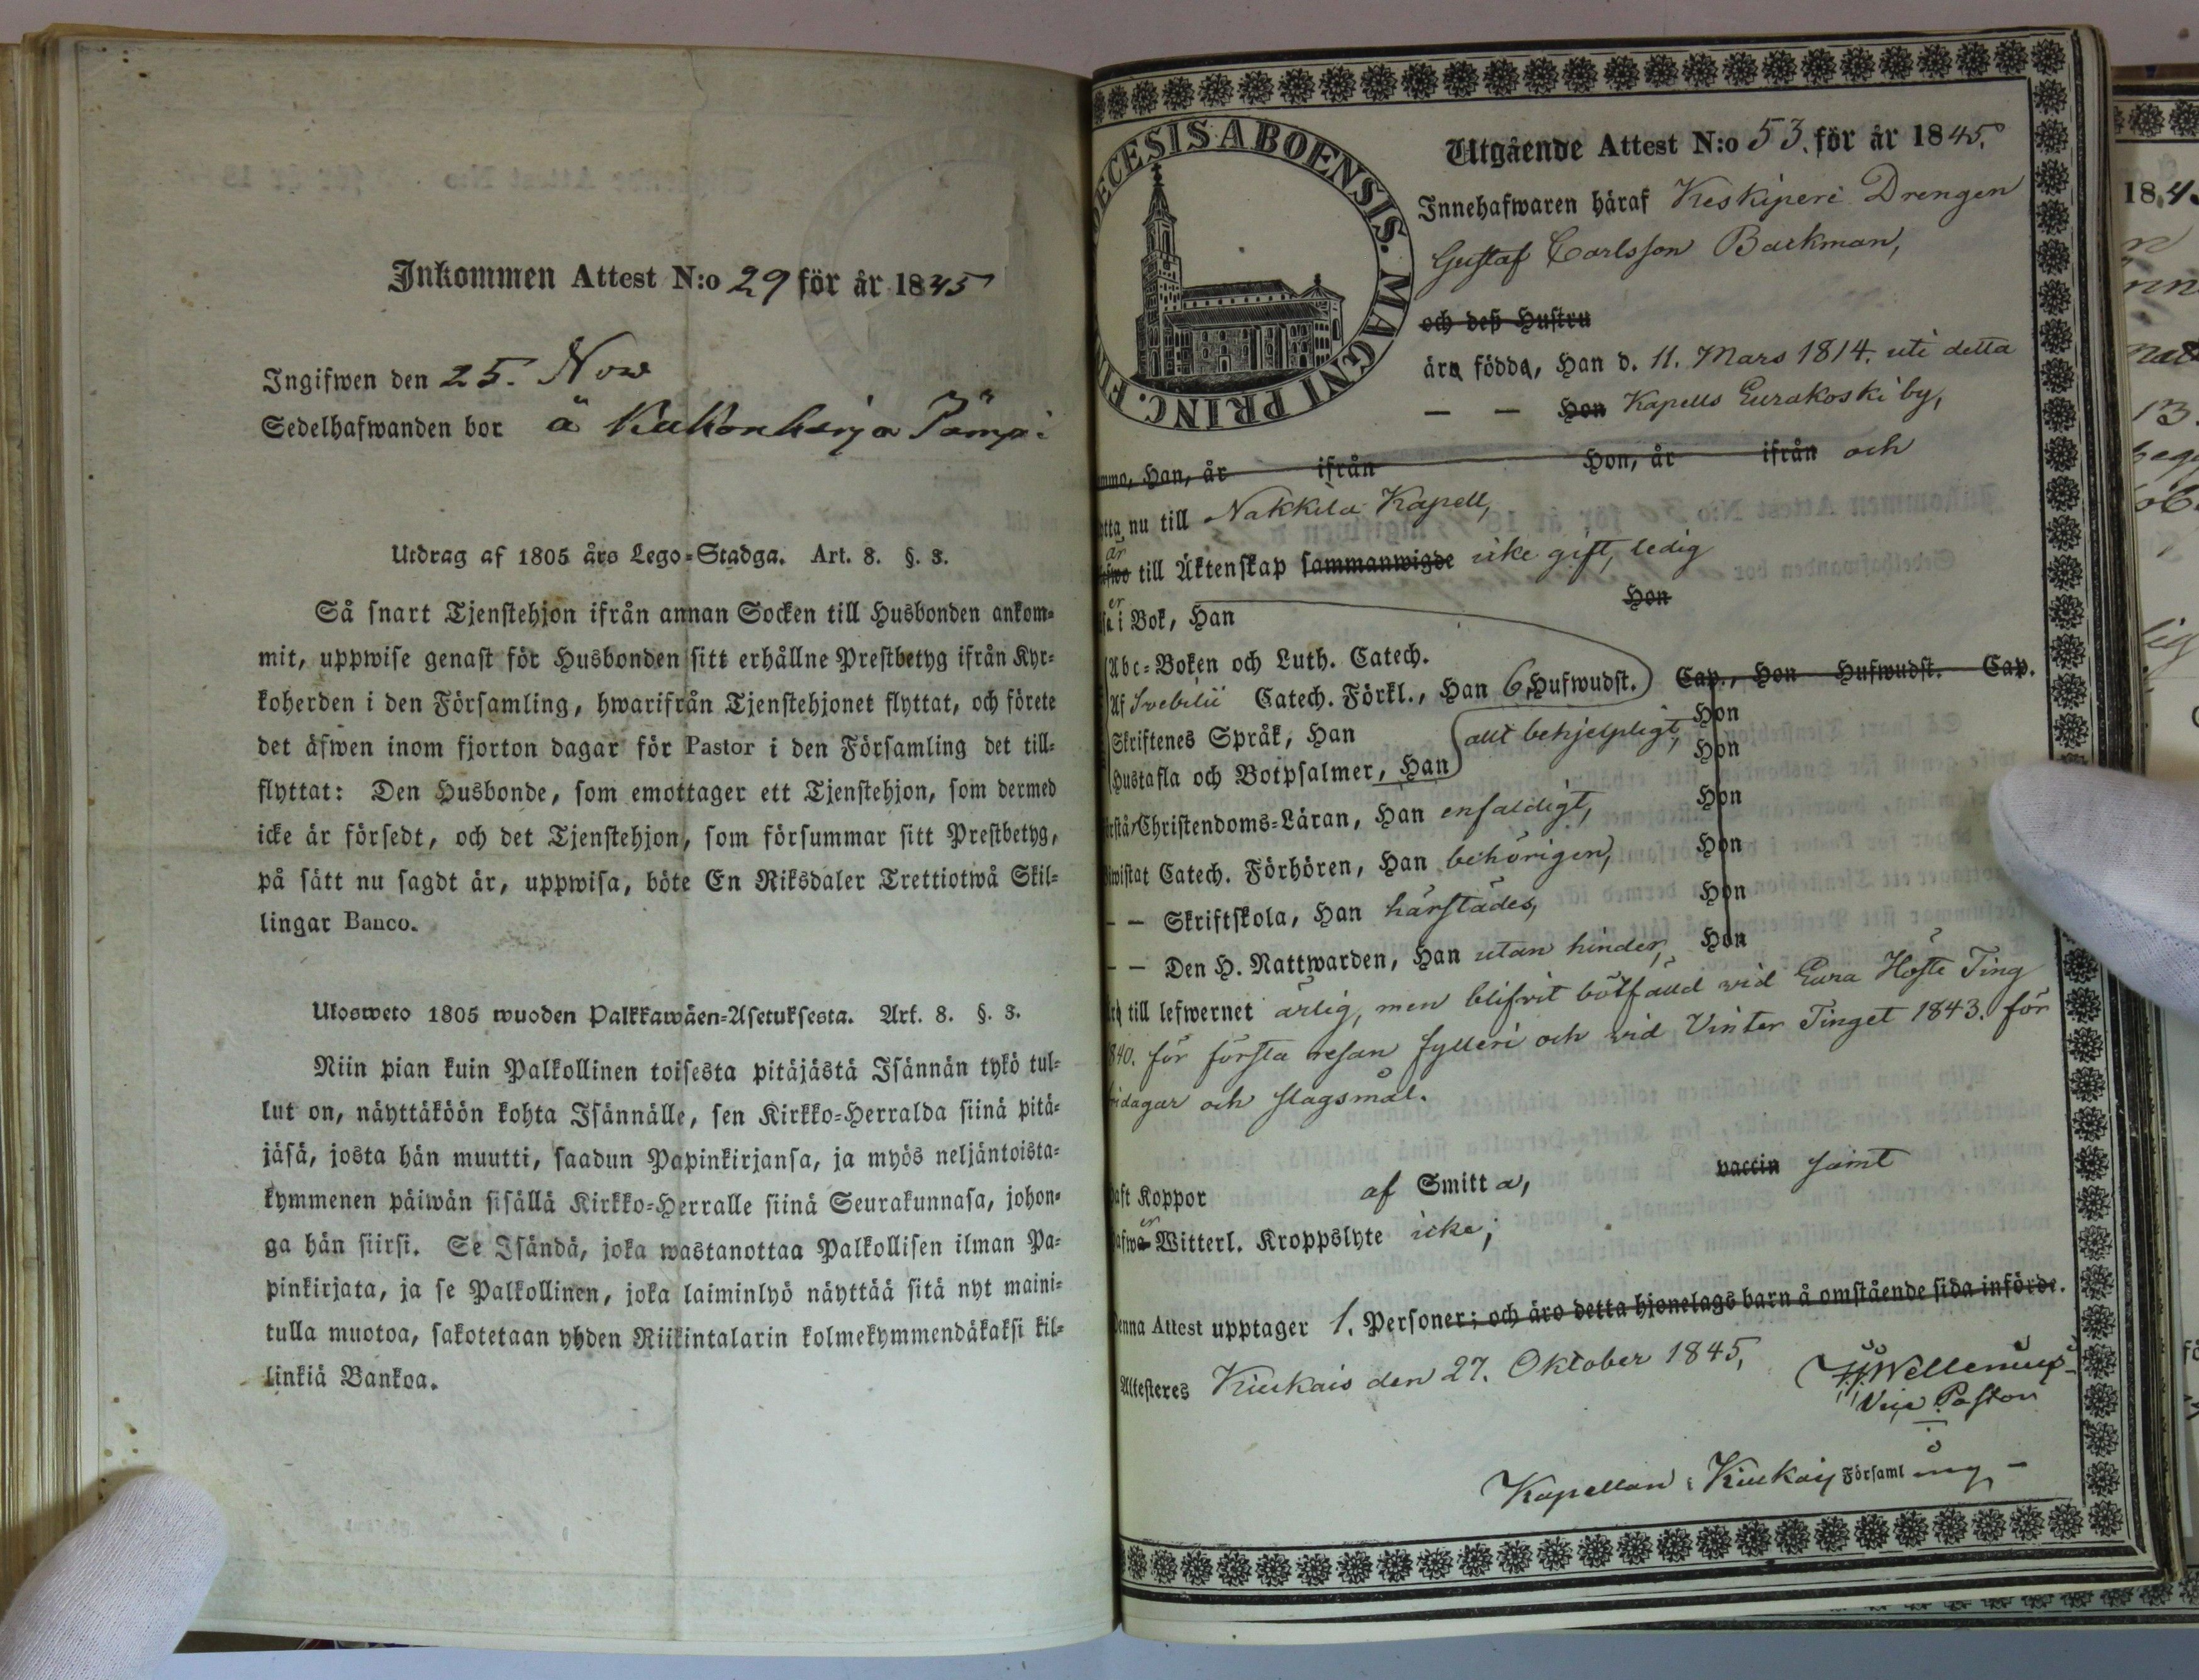 Inkommen Attest N:o 29 för år 1845
Ingifwen den 25. Nov
Sedelhafwanden bor å Kakonharja Tömpi
Utdrag af 1805 års Lego-Stadga. Art. 8. §. 3.
Så snart Tjenstehjon ifrån annan Socken till Husbonden ankom-
mit, uppwise genast för Husbonden sitt erhållne Prestbetyg ifrån Kyr-
koherden i den Församling, hwarifrån Tjenstehjonet flyttat, och förete
det äfwen inom fjorton dagar för Pastor i den Församling det till-
flyttat: Den Husbonde, som emottager ett Tjenstehjon, som dermed
icke är försedt, och det Tjenstehjon, som försummar sitt Prestbetyg,
på sätt nu sagdt är, uppwisa, böte En Riksdaler Trettiotwå Skil-
lingar Banco.
Ulosweto 1805 wuoden Palkkawäen-Asetuksesta. Art. 8. §. 3.
Niin pian kuin Palkollinen toisesta pitäjästä Isännän tykö tul-
lut on, näyttäköön kohta Isännälle, sen Kirkko-Herralda siinä pitä-
jäsä, josta hän muutti, saadun Papinkirjansa, ja myös neljäntoista-
kymmenen päiwän sisällä Kirkko-Herralle siinä Seurakunnasa, johon-
ga hän siirsi. Se Isändä, joka wastanottaa Palkollisen ilman Pa-
pinkirjata, ja se Palkollinen, joka laiminlyö näyttää sitä nyt maini-
tulla muotoa, sakotetaan yhden Riikintalarin kolmekymmendäkaksi kil-
linkiä Bankoa.
DECESIS ABOENSIS. MAGNI PRINC. FI
Utgående Attest N:o 53. för år 1845.
Innehafwaren häraf Keskiperi Drengen
Gustaf Carlsson Barkman,
och deß Hustru
äro födda, Han d. 11. Mars 1814. uti detta
— — Hon Kapells Eurakoski by,
Han, år ifrån Hon, år ifrån och
nu till Nakkila Kapell,
är
till Äktenskap sammanwigde icke gift, ledig
Hon
er
i Bok, Han
Abc-Boken och Luth. Catech.
Af Svebilii Catech. Förkl., Han 6. Hufwudst. Cap., Hon Hufwudst. Cap.
Skriftenes Språk, Han allt behjelpligt, Hon
Hustafla och Botpsalmer, Han Hon
Christendoms-Läran, Han enfaldigt, Hon
Catech. Förhören, Han behörigen, Hon
— — Skriftskola, Han härstädes, Hon
— — Den H. Nattwarden, Han utan hinder, Hon
till lefwernet ärlig, men blifvit bötfälld vid Eura Höste Ting
1840. för första resan fylleri och vid Vinter Tinget 1843. för
dagar och slagsmål.
Koppor af Smitta, vaccin samt
er
Witterl. Kroppslyte icke;
Denna Attest upptager 1. Personer; och äro detta hjonelags barn å omstående sida införde.
Attesteres Kiukais den 27. Oktober 1845,
Wellenius
Vice Pastor
Kapellan i Kiukais Församling